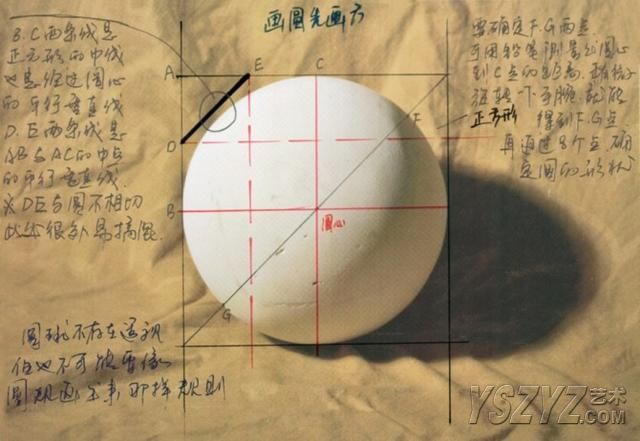 画圆先画方
B.C两条线是
正方形的中线
也是经过圆心
的平行垂直线
D.E两条线是
AB与AC的中点
的平行垂直线.
※DE与圆不相切
此处很容易搞混.
要确定F.G两点
可用铅笔测量处圆心
到C点的距离,
旋转一下手腕,就能
得到F.G点.
再通过8个点确
定圆的形状
正方形
A
E
C
F
D
B
圆心
G
圆球不存在透视
但也不可能要像
圆规画出来那样规则
YSZYZ艺术
.COM